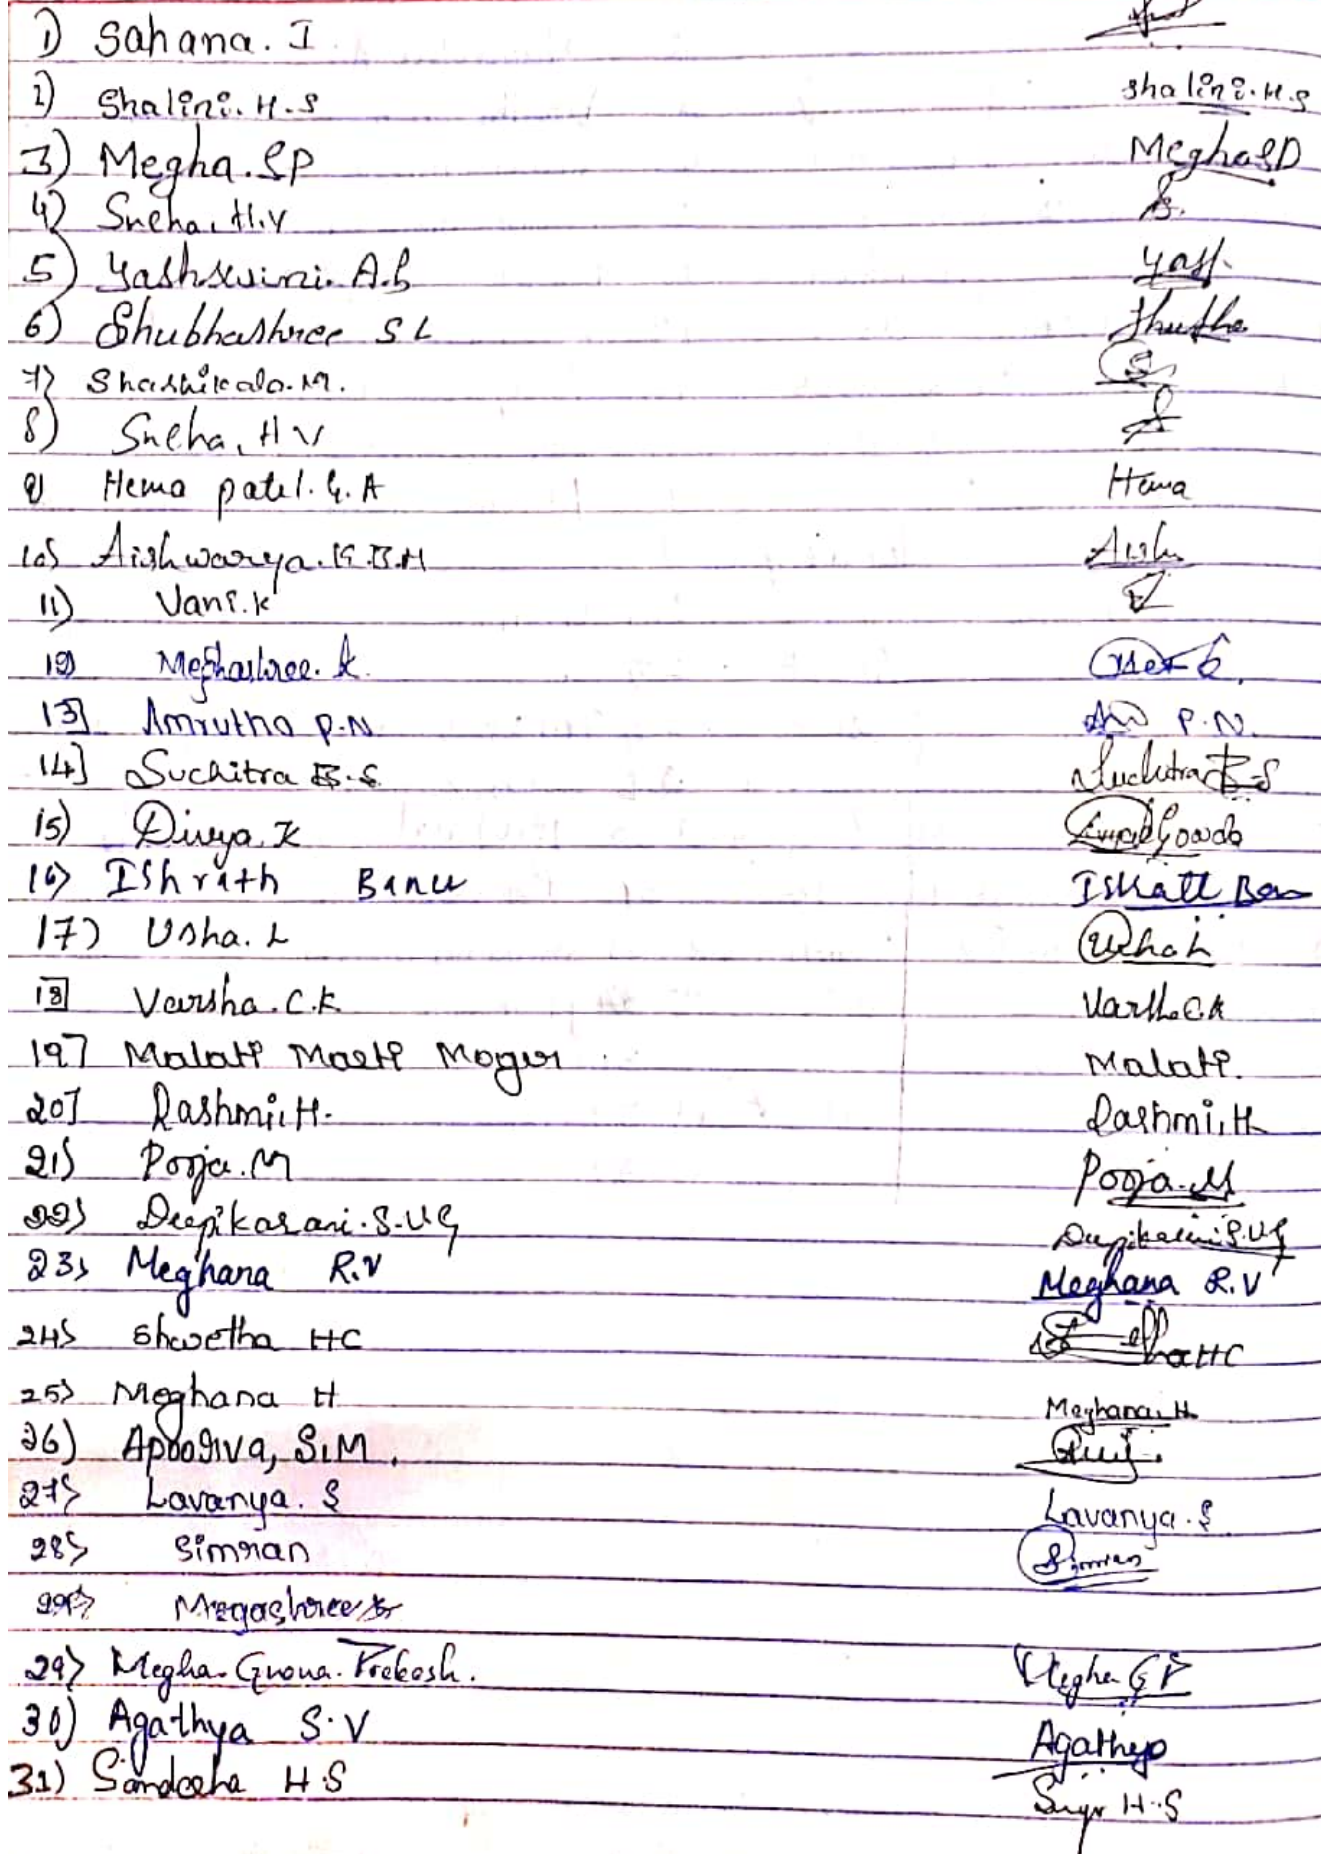 1) Sahana. I
2) Shalini. H.S shalini.H.S
3) Megha.SP Megha SD
4) Sneha. H.V S.
5) Yashswini. A.B Yash.
6) Shubhashree SL
7) Shashikala.M. S
8) Sneha. H V S
9) Hema patel. G. A Hema
10) Aishwarya. K.B.M Aishu
11) Vani.k V
12) Meghashree. k.
13] Amrutha P.N. P.N.
14] Suchitra B.S Suchitra B-S
15) Divya.K Gowda
16) Ishrath Banu
17) Usha. L Usha L
18] Varsha.C.K Varsh.CK
19] Malati Maeti Moger Malati.
20] Rashmi.H. Rashmi.H
21) Pooja.M Pooja.M
22) Deepikarani.S.UG Deepikarani.S.UG
23) Meghana R.V Meghana R.V
24) Shwetha HC HC
25) Meghana H Meghana.H
26) Apoorva, S.M.
27) Lavanya. S Lavanya.S
28) Simran Simran
29) Megashree
29) Megha. Gnana. Prakash. Megha G P
30) Agathya S.V Agathya
31) H.S H.S